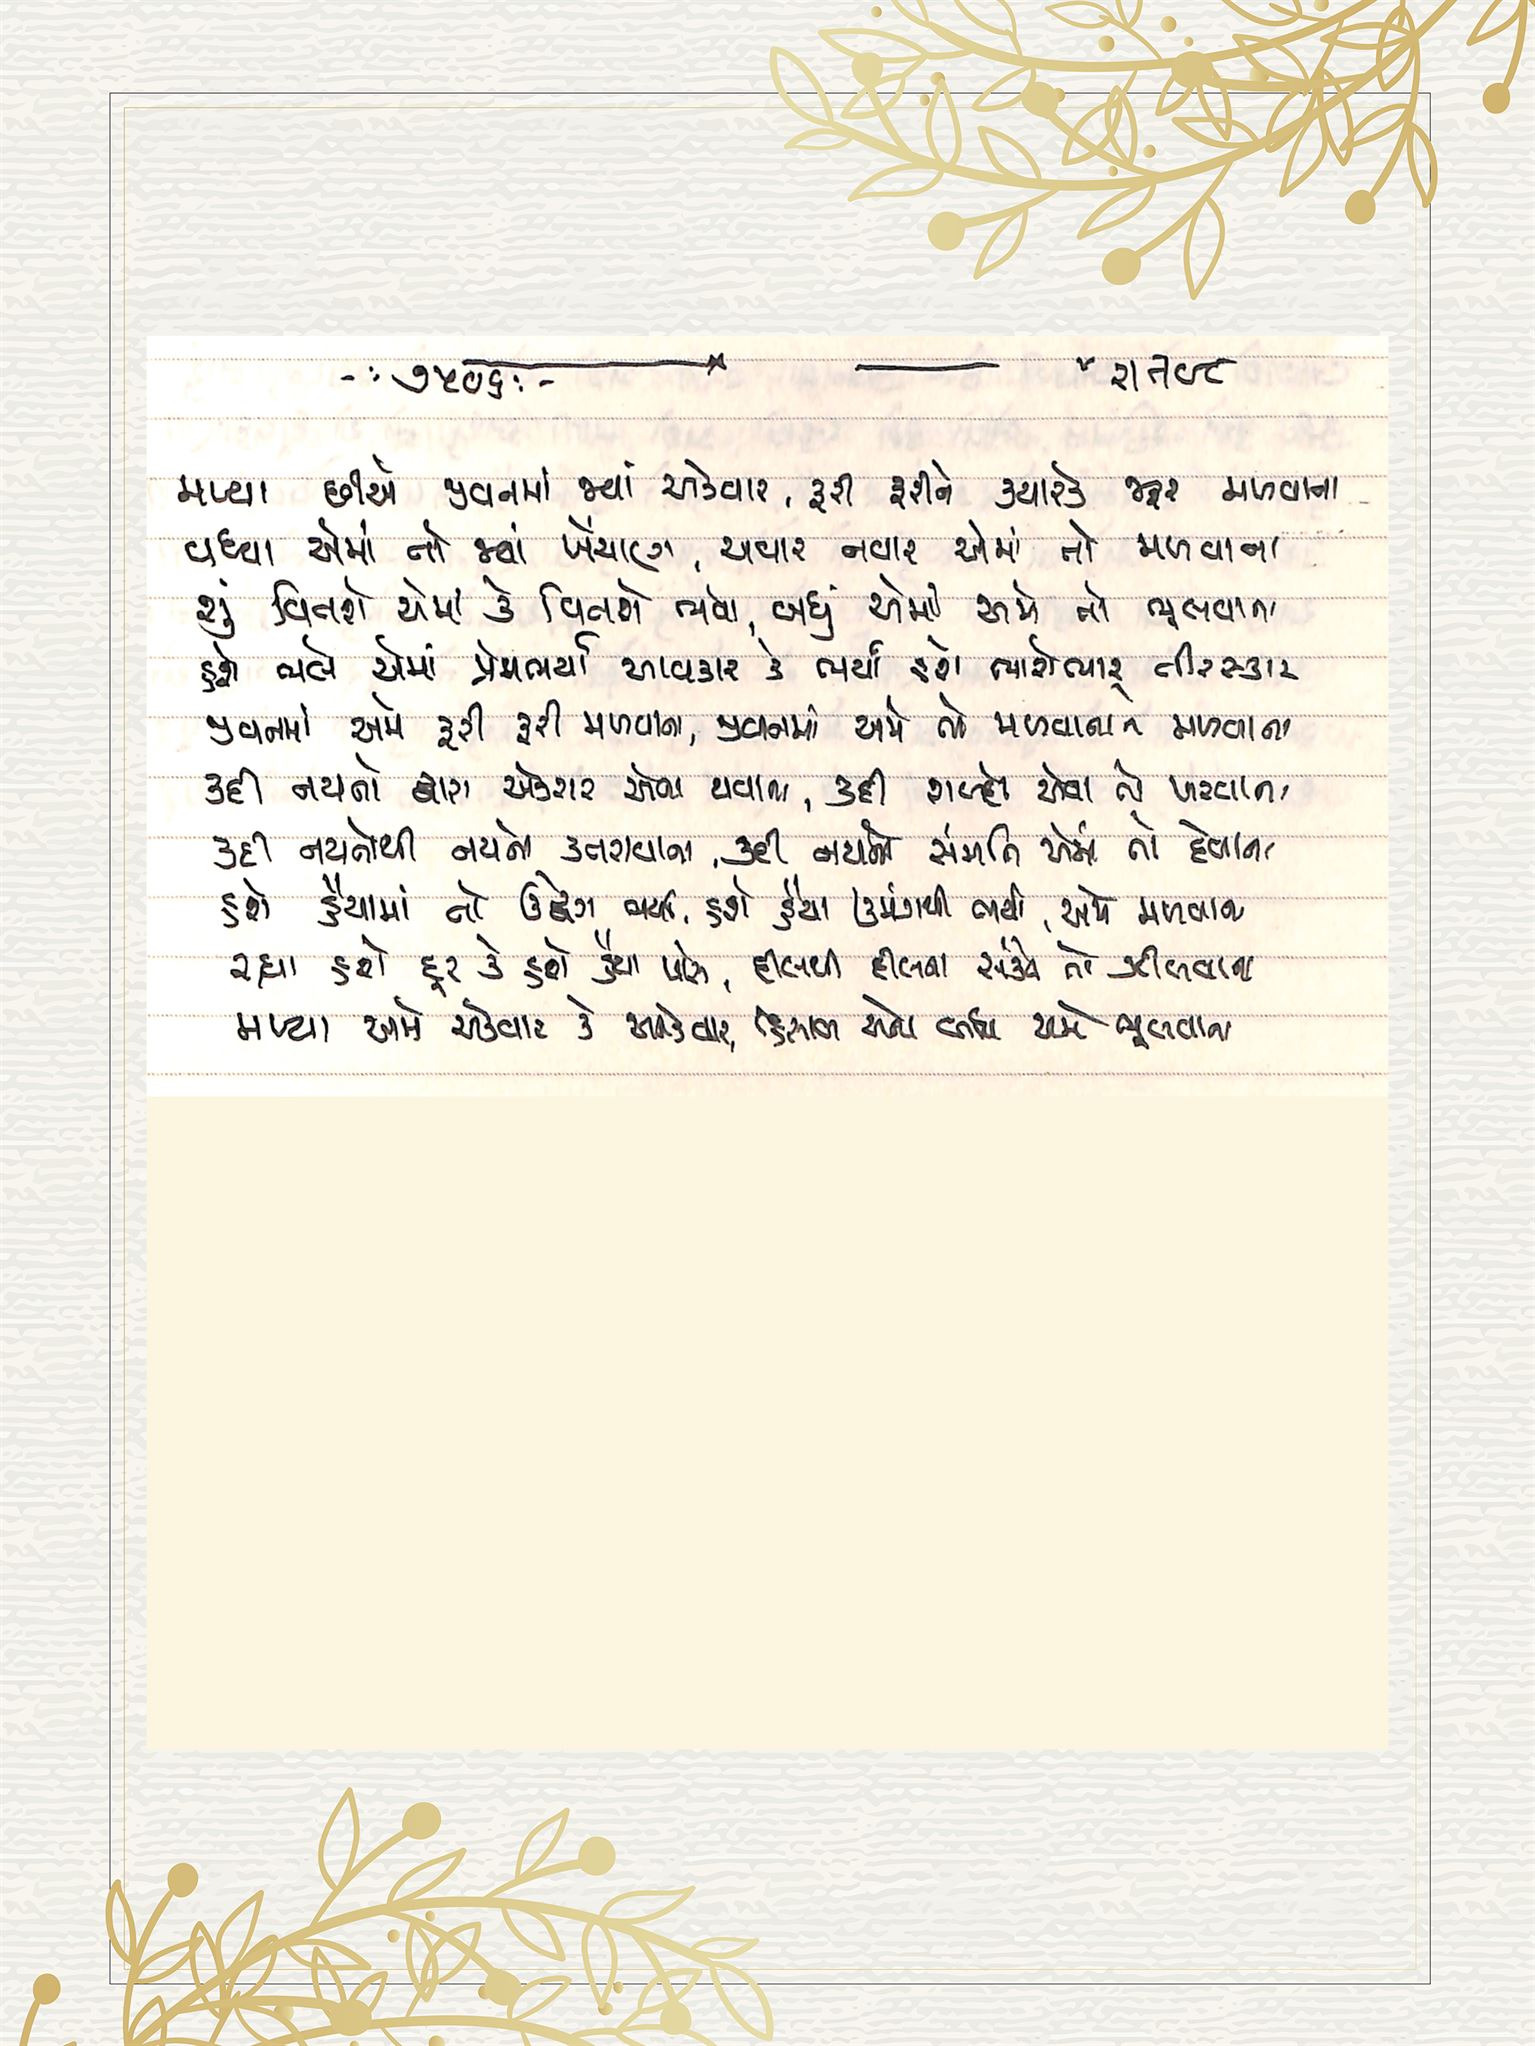 -: ૭૫૦૬ :-
મળ્યા છીએ જીવનમાં જ્યાં એકવાર, ફરી ફરીને ક્યારેક જરૂર મળવાના
વધ્યા એમાં તો જ્યાં ખેંચાણ, અવાર નવાર એમાં તો મળવાના
શું વિતશે એમાં કે વિતશે ભલે, બધું એમાં અમે તો ભૂલવાના
હશે ભલે એમાં પ્રેમભર્યા આવકાર કે ભર્યા હશે ભારોભાર તીરસ્કાર
જીવનમાં અમે ફરી ફરી મળવાના, જીવનમાં અમે તો મળવાના ને મળવાના
કદી નયનો દ્વારા એકરાર એવા થવાના, કદી શબ્દો એવા તો ખરવાના
કદી નયનોથી નયનો કતરાવાના, કદી નયનો સંમતિ એમાં તો દેવાના
હશે હૈયામાં તો ઉદ્વેગ ભર્યા, હશે હૈયા ઉમંગથી ભર્યા, અમે મળવાના
રહ્યા હશે દૂર કે હશે હૈયા પાસે, દીલથી દીલના સંકેત તો ઝીલવાના
મળ્યા અમે એકવાર કે અનેકવાર, હિસાબ એના બધા અમે ભૂલવાના